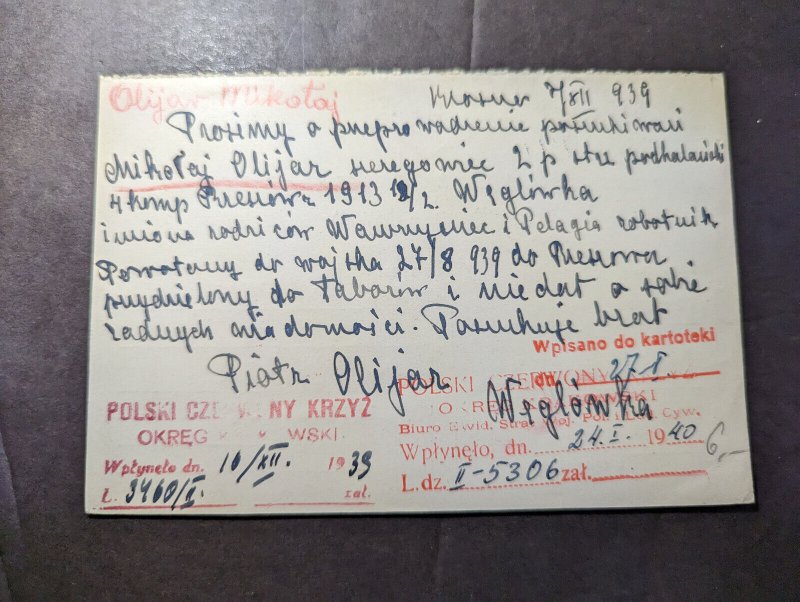 Olijar Mikołaj
Krosno 7/XII 939
Prosimy o przeprowadzenie poszukiwań
Mikołaj Olijar szeregowiec 2 p strz podhalański
4 komp Rzeszów 1913 /2. Węglówka
imiona rodziców Wawrzyniec i Pelagia robotnik
Powołany do wojska 27/8 939 do Rzeszowa
przydzielony do Taborów i nie dał o sobie
żadnych wiadomości. Poszukuje brat
Piotr Olijar
Węglówka
Wpisano do kartoteki
dn. 27 I
POLSKI CZERWONY KRZYŻ
OKRĘG WSKI
Wpłynęło dn. 16/XII. 1939
L. 3460/I. zał.
POLSKI CZERWONY
OKRĘG WSKI
Biuro Ewid. Strat Woj. Cyw.
Wpłynęło, dn. 24.I. 1940
L.dz. I-5306 zał.
6,-